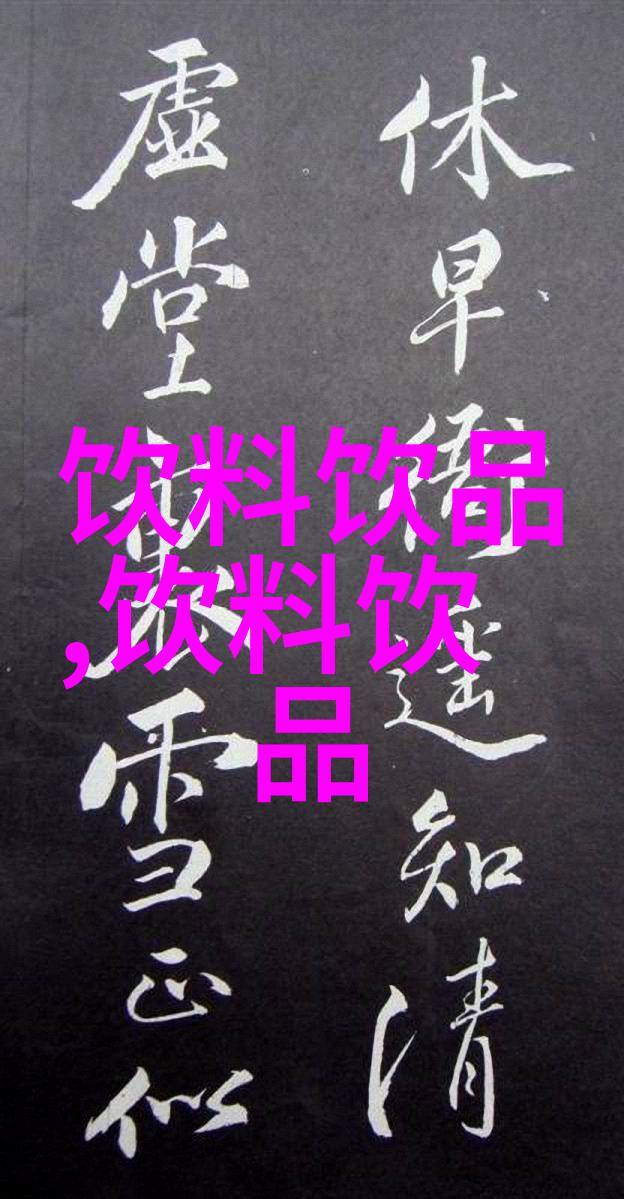 休早衙遥知清
虚堂雪正似
饮料饮品
,饮料饮
品